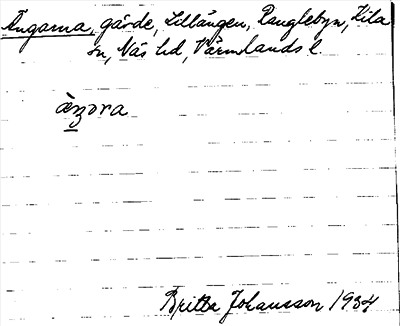 Ängarna, gärde, Lillängen, Ranglebyn, Kila
sn, Näs hd, Värmlands l.
Britta Johansson 1934